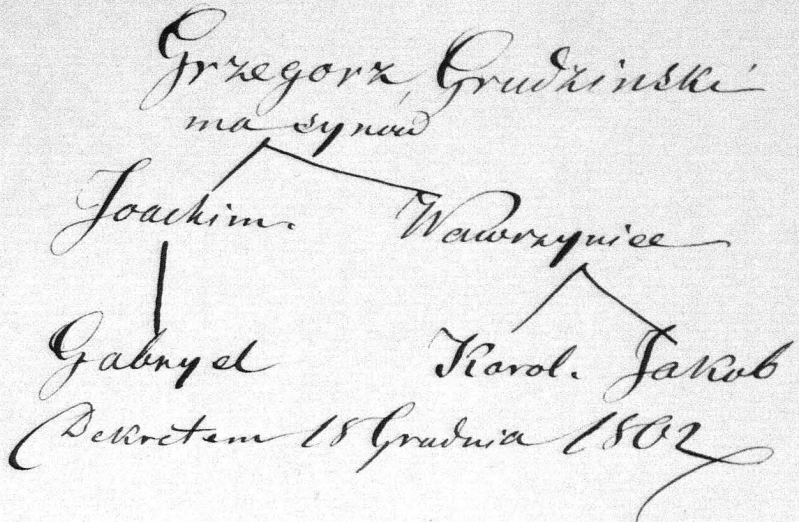 Grzegorz, Grudziński
ma synów
Joachim. Wawrzyniec
Gabryel Karol. Jakob
(Dekretem 18 Grudnia 1802